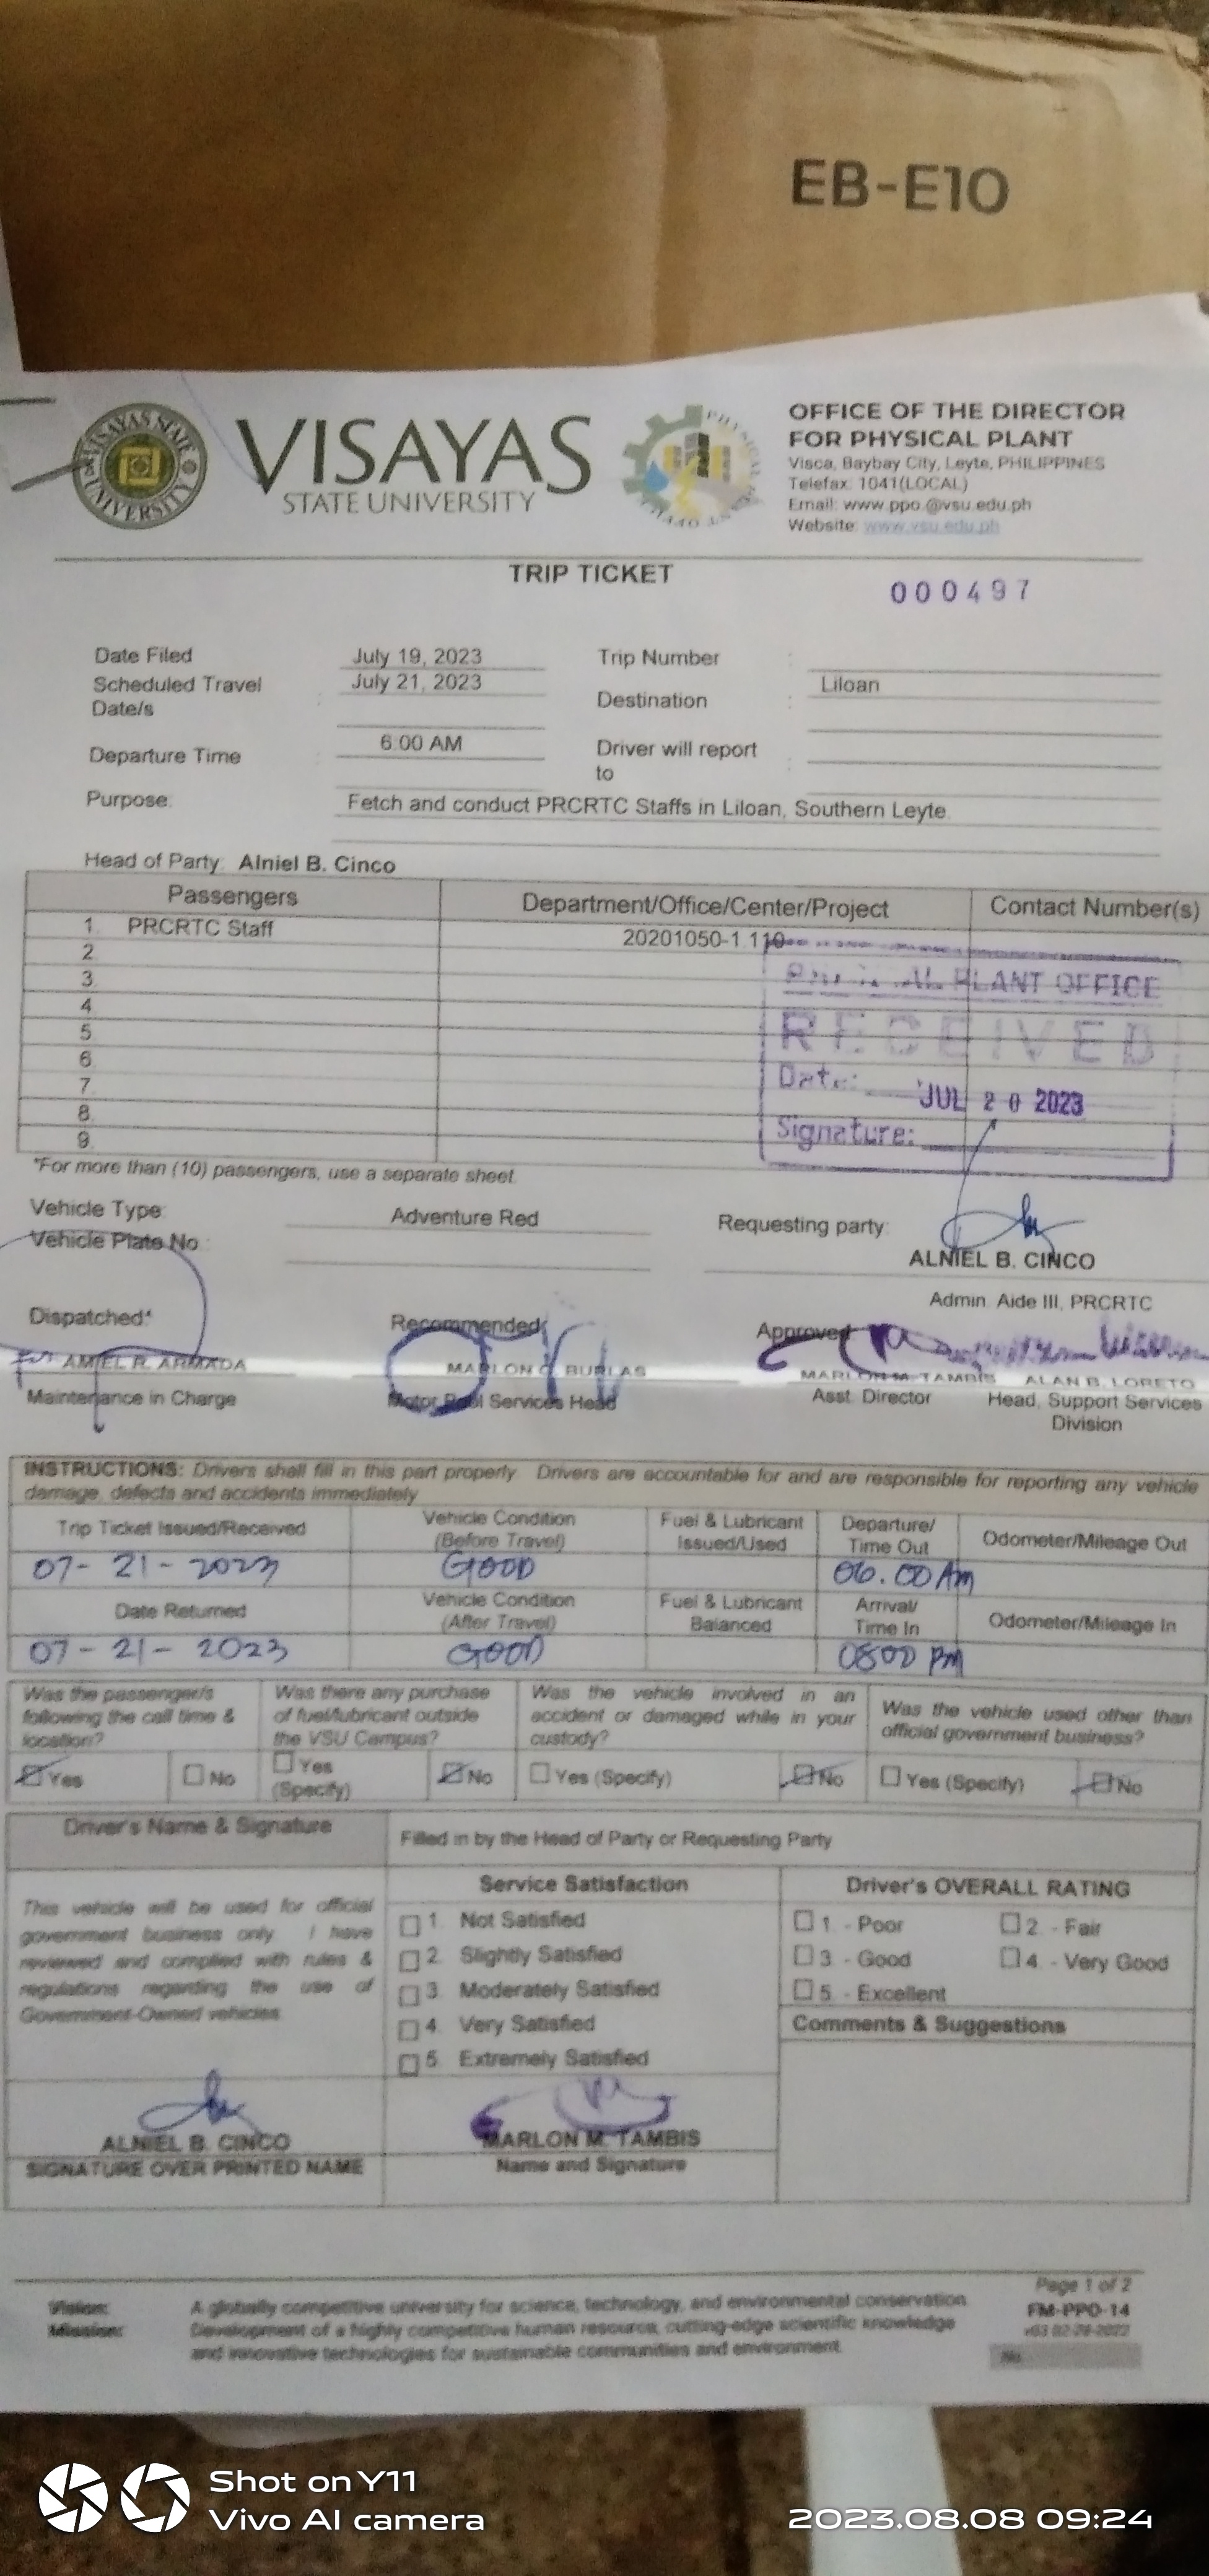 EB-E10
VISAYAS STATE UNIVERSITY
VISAYAS
STATE UNIVERSITY
OFFICE OF THE DIRECTOR
FOR PHYSICAL PLANT
Visca, Baybay City, Leyte, PHILIPPINES
Telefax: 1041(LOCAL)
Email: www.ppo.@vsu.edu.ph
Website: www.vsu.edu.ph
TRIP TICKET
000497
Date Filed July 19, 2023 Trip Number :
Scheduled Travel Date/s : July 21, 2023 Destination : Liloan
Departure Time : 6:00 AM Driver will report to :
Purpose: Fetch and conduct PRCRTC Staffs in Liloan, Southern Leyte
Head of Party: Alniel B. Cinco
Passengers Department/Office/Center/Project Contact Number(s)
1. PRCRTC Staff 20201050-1.110
2.
3.
4.
5.
6.
7.
8.
9.
PLANT OFFICE
RECEIVED
Date: JUL 20 2023
Signature:
*For more than (10) passengers, use a separate sheet.
Vehicle Type: Adventure Red Requesting party:
Vehicle Plate No.
ALNIEL B. CINCO
Admin. Aide III, PRCRTC
Dispatched:* Recommended: Approved:
for AMIEL R. ARMADA MARLON G. BURLAS MARLON M. TAMBIS ALAN B. LORETO
Maintenance in Charge Motor Pool Services Head Asst. Director Head, Support Services
Division
INSTRUCTIONS: Drivers shall fill in this part properly. Drivers are accountable for and are responsible for reporting any vehicle
damage, defects and accidents immediately
Trip Ticket Issued/Received Vehicle Condition (Before Travel) Fuel & Lubricant Issued/Used Departure/ Time Out Odometer/Mileage Out
07-21-2023 GOOD 06.00 Am
Date Returned Vehicle Condition (After Travel) Fuel & Lubricant Balanced Arrival/ Time In Odometer/Mileage In
07-21-2023 GOOD 0800 Pm
Was the passenger/s following the call time & location? Was there any purchase of fuel/lubricant outside the VSU Campus? Was the vehicle involved in an accident or damaged while in your custody? Was the vehicle used other than official government business?
Yes No Yes (Specify) No Yes (Specify) No Yes (Specify) No
Driver's Name & Signature Filled in by the Head of Party or Requesting Party
Service Satisfaction Driver's OVERALL RATING
This vehicle will be used for official
government business only. I have
reviewed and complied with rules &
regulations regarding the use of
Government-Owned vehicles.
1. Not Satisfied
2. Slightly Satisfied
3. Moderately Satisfied
4. Very Satisfied
5. Extremely Satisfied
1. - Poor 2. - Fair
3 - Good 4. - Very Good
5. - Excellent
Comments & Suggestions
ALNIEL B. CINCO MARLON M. TAMBIS
SIGNATURE OVER PRINTED NAME Name and Signature
Page 1 of 2
FM-PPO-14
v03 02-28-2022
No.
Vision: A globally competitive university for science, technology, and environmental conservation
Mission: Development of a highly competitive human resource, cutting-edge scientific knowledge
and innovative technologies for sustainable communities and environment.
Shot on Y11
Vivo AI camera
2023.08.08 09:24